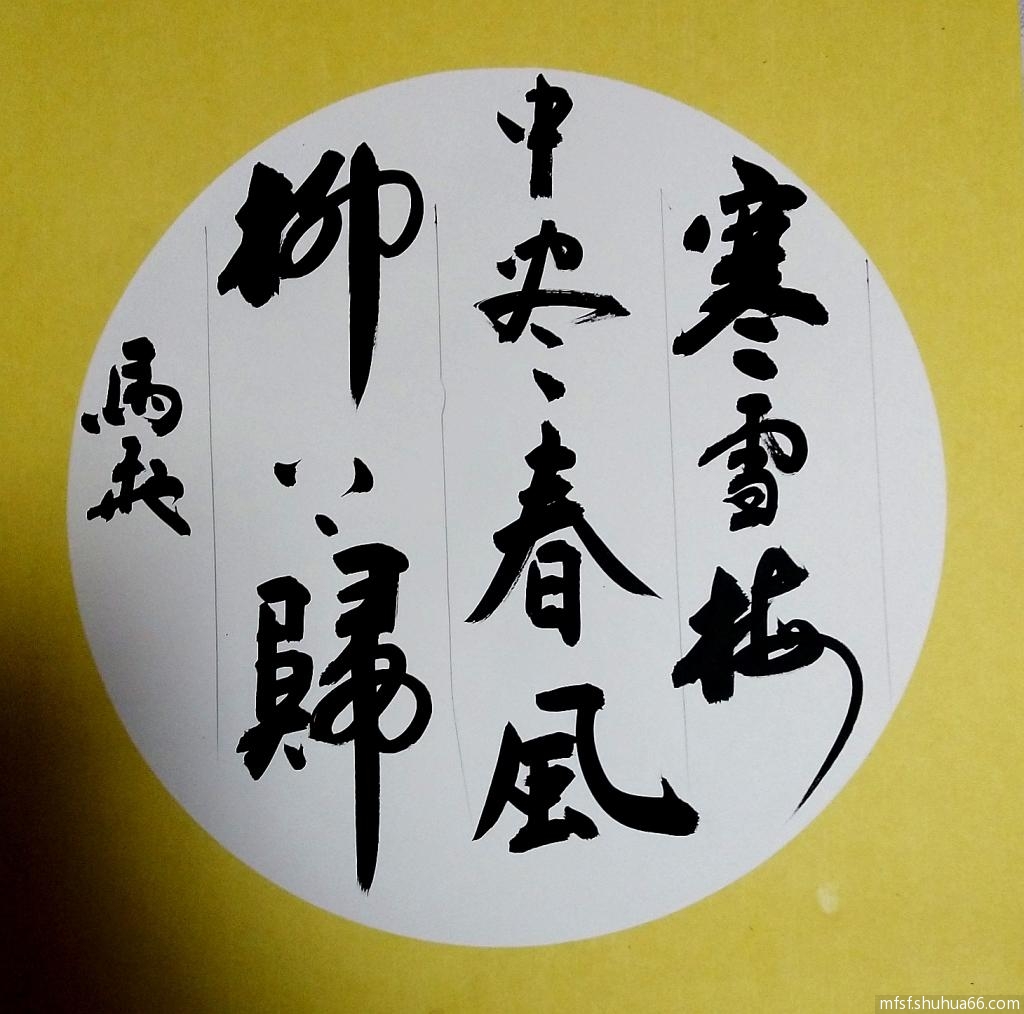 寒雪梅
中尽春風
柳上歸
馬飛
mfsf.shuhua66.com